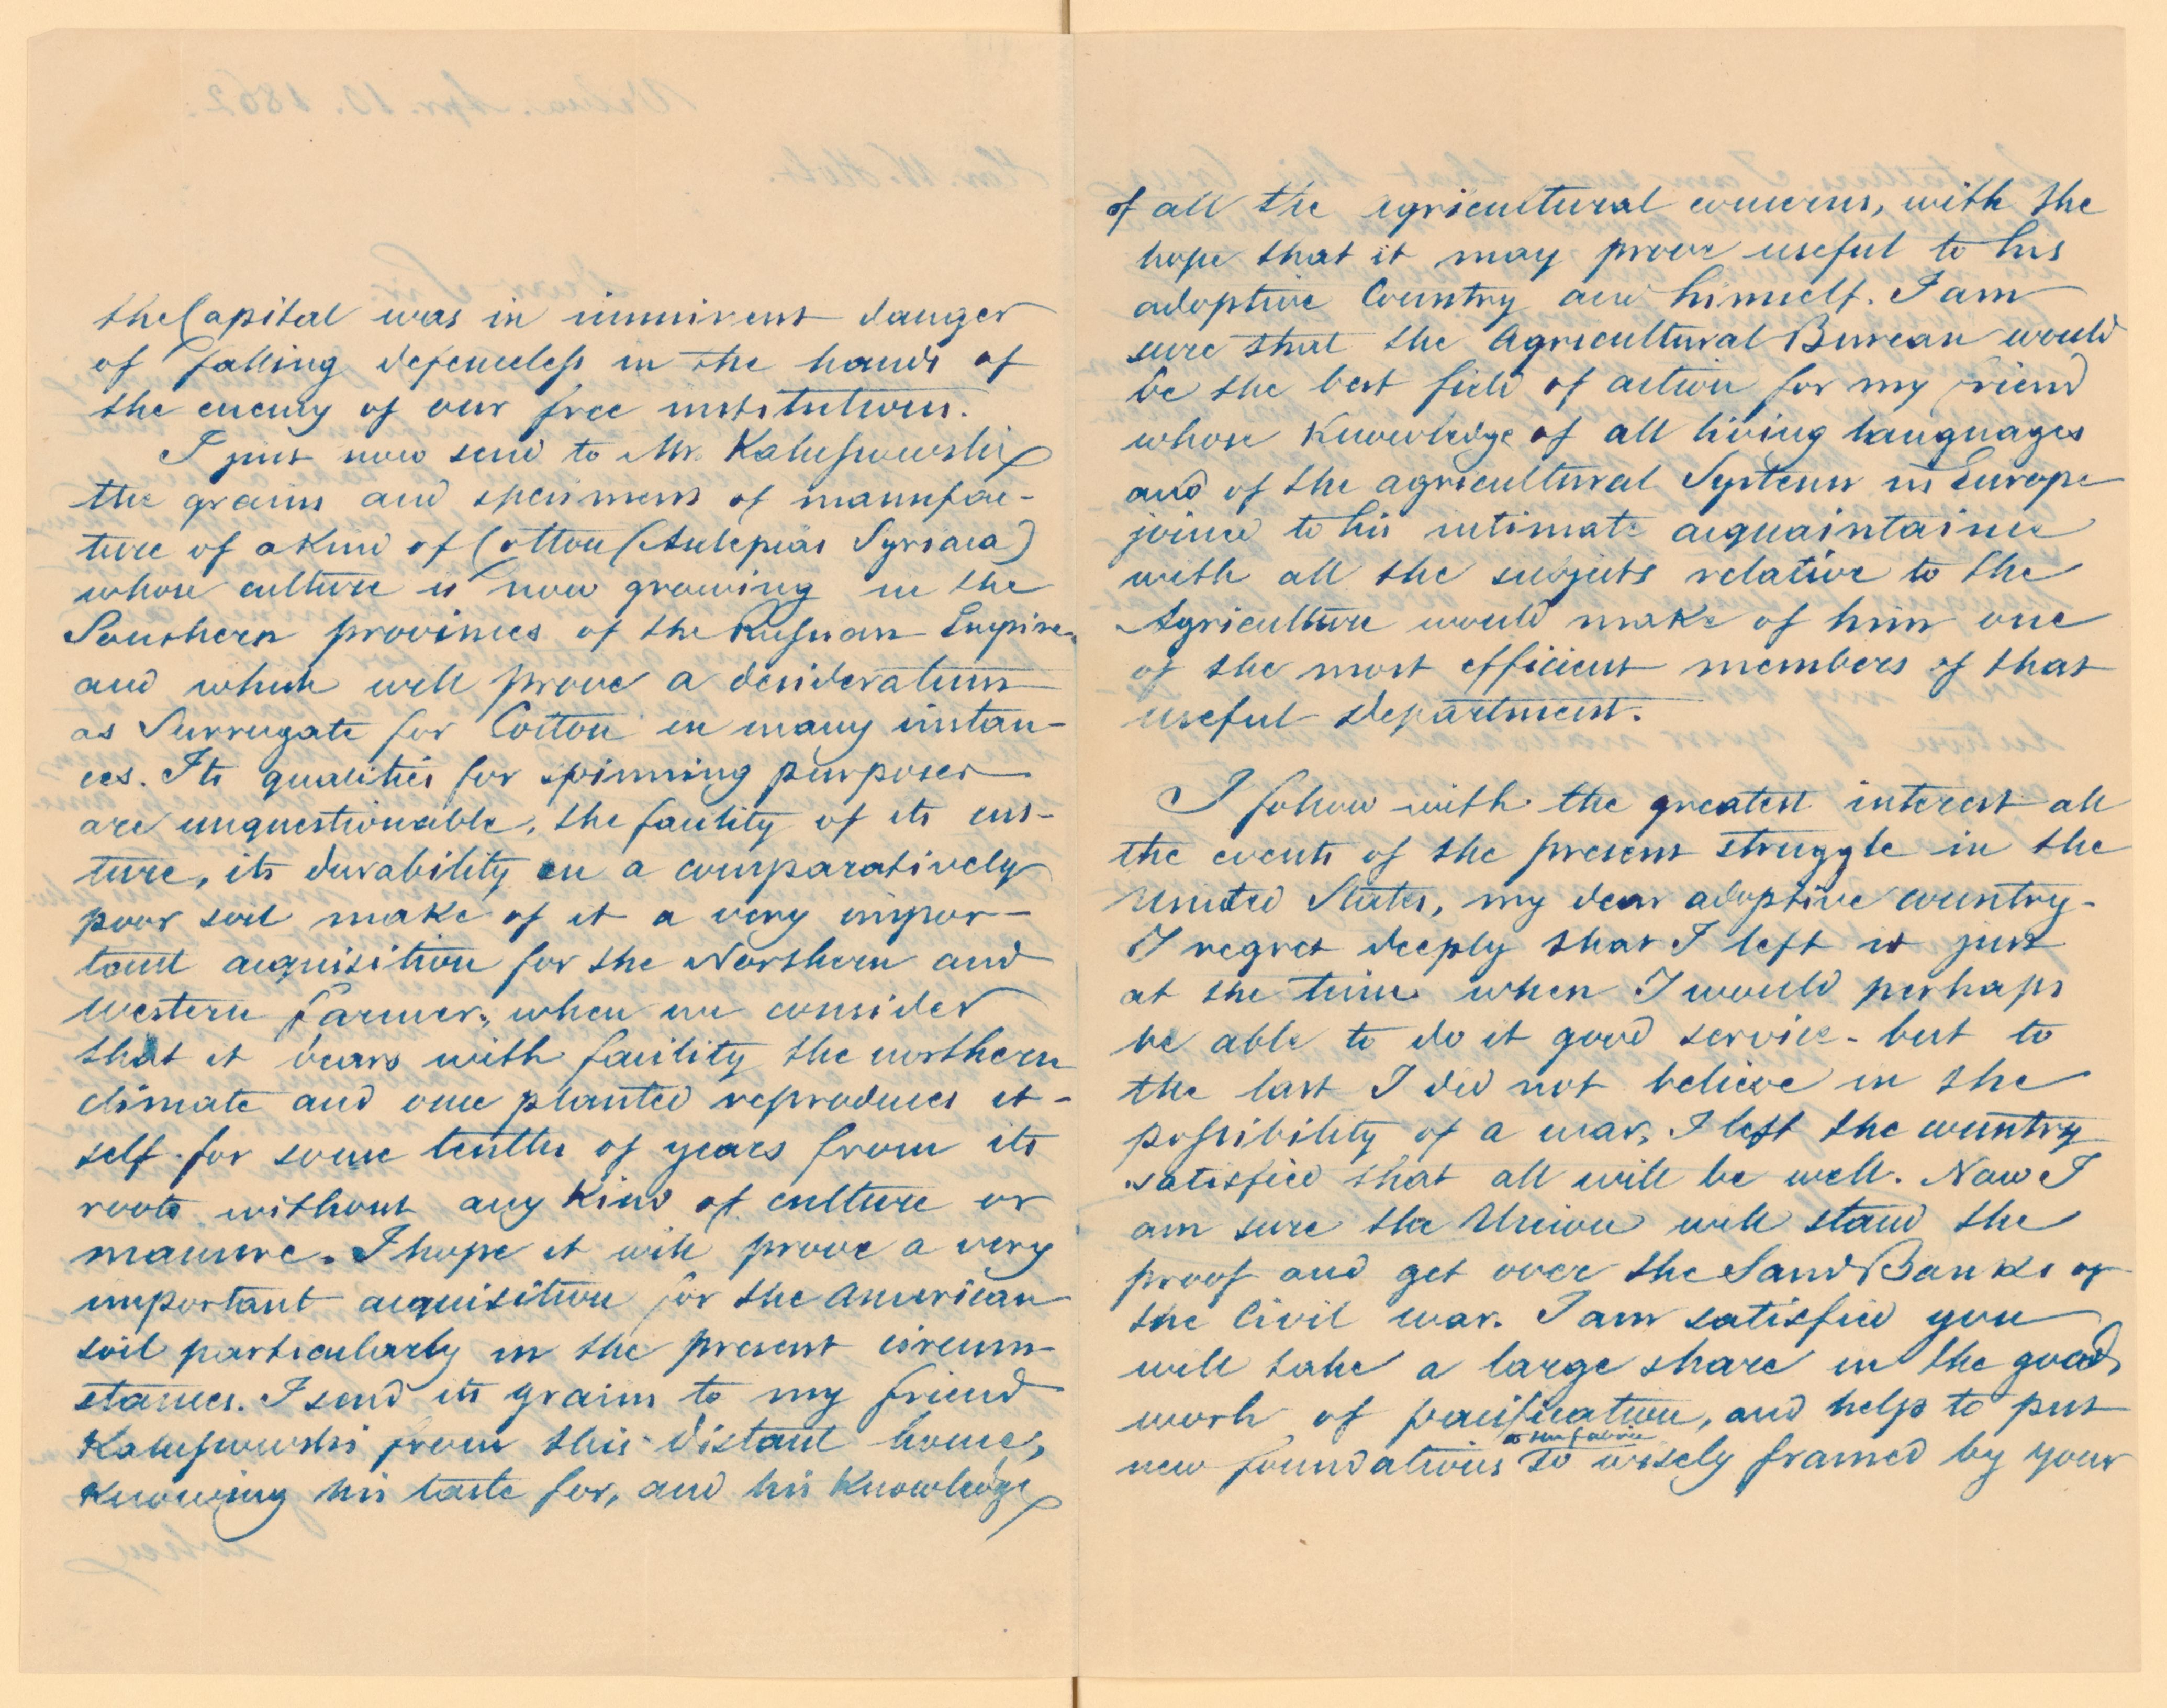 the Capital was in imminent danger
of falling defenceless in the hands of
the enemy of our free institutions.
I just now send to Mr. Kalussowski
the grains and specimens of manufac-
ture of a Kind of Cotton (Asclepias Syriaca)
whose culture is now growing in the
Southern provinces of the Russian Empire
and which will prove a desideratum
as Surrogate for Cotton in many instan-
ces. Its qualities for spinning purposes
are unquestionable, the facility of its cul-
ture, its durability on a comparatively
poor soil make of it a very impor-
tant acquisition for the Northern and
Western Farmer, when we consider
that it bears with facility the northern
climate and once planted reproduces it-
self for some tenths of years from its
roots without any Kind of culture or
manure. I hope it will prove a very
important acquisition for the American
soil particularly in the present circum-
stances. I send its grains to my friend
Kalussowski from this distant home,
Knowing his taste for, and his Knowledge
of all the agricultural concerns, with the
hope that it may prove useful to his
adoptive Country and himself. I am
sure that the Agricultural Bureau would
be the best field of action for my friend
whose Knowledge of all living languages
and of the agricultural Systems in Europe
joined to his intimate acquaintaince
with all the subjects relative to the
Agriculture would make of him one
of the most efficient members of that
useful department.
I follow with the greatest interest all
the events of the present struggle in the
United States, my dear adoptive country.
I regret deeply that I left it just
at the time when I would perhaps
be able to do it good service - but to
the last I did not believe in the
possibility of a war, I left the country
satisfied that all will be well. Now I
am sure the Union will stand the
proof and get over the Sand Banks of
the Civil war. I am satisfied you
will take a large share in the good
work of pacification, and help to put
new foundations to the fabric so wisely framed by your